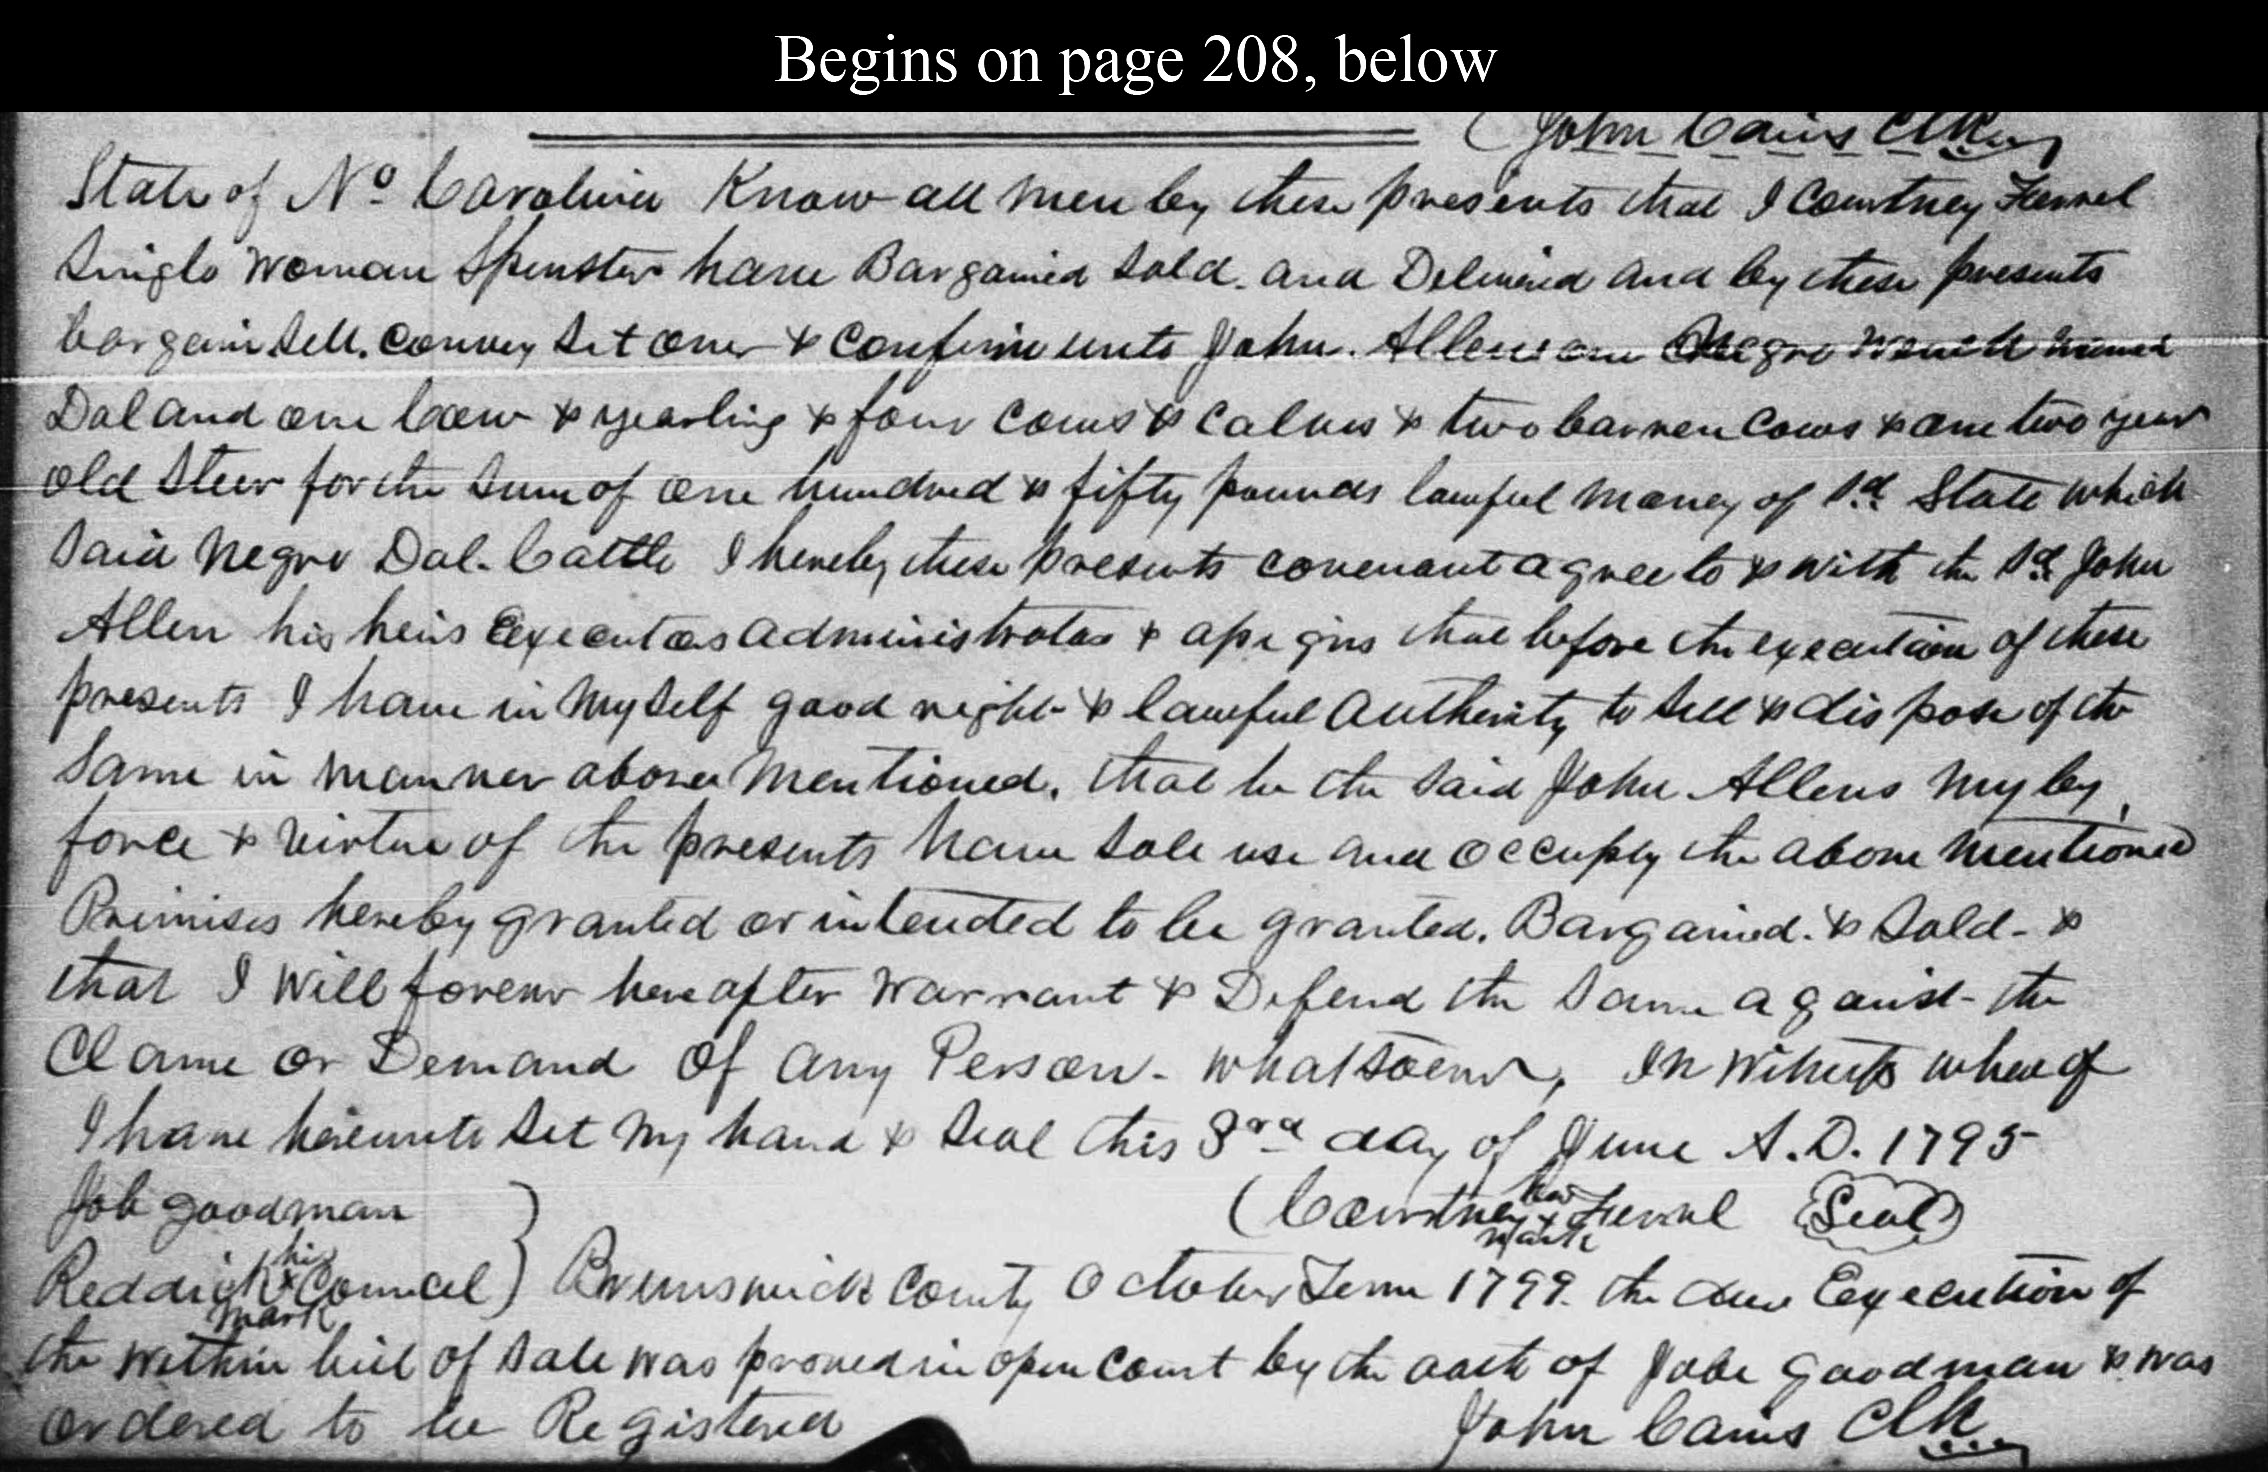 Begins on page 208, below
John Cains Clk
State of No Carolina Know all men by these presents that I Courtney Fennel
Single Woman Spenster have Bargained sold. and Delivered and by these presents
bargain sell. convey set over & confirm unto John. Allens one Negro Wench named
Dal and one Cow & yearling & four cows & calves & two barren cows & one two year
old steer for the sum of one hundred & fifty pounds lawful money of sd State which
said Negro Dal. Cattle I hereby these presents covenant agree to & with the sd John
Allen his heirs Executors administrators & assigns that before the execution of these
presents I have in myself good right & lawful authority to sell & dispose of the
same in manner above mentioned, that he the said John Allens my by
force & virtue of the presents have sole use and occupy the above mentioned
Primises hereby granted or intended to be granted. Bargained. & sold - &
that I will forever hereafter warrant & Defend the same against the
Clame or Demand of any Person - whatsoever, In Witness whereof
I have hereunto set my hand & seal this 3rd day of June A.D. 1795
Job Goodman
(Courtney her x mark Fennel (Seal)
Reddick his x mark Council) Brunswick County October Term 1799. the due Execution of
the within bill of sale was proved in open court by the oath of Jobe Goodman & was
ordered to be Registered
John Cains Clk